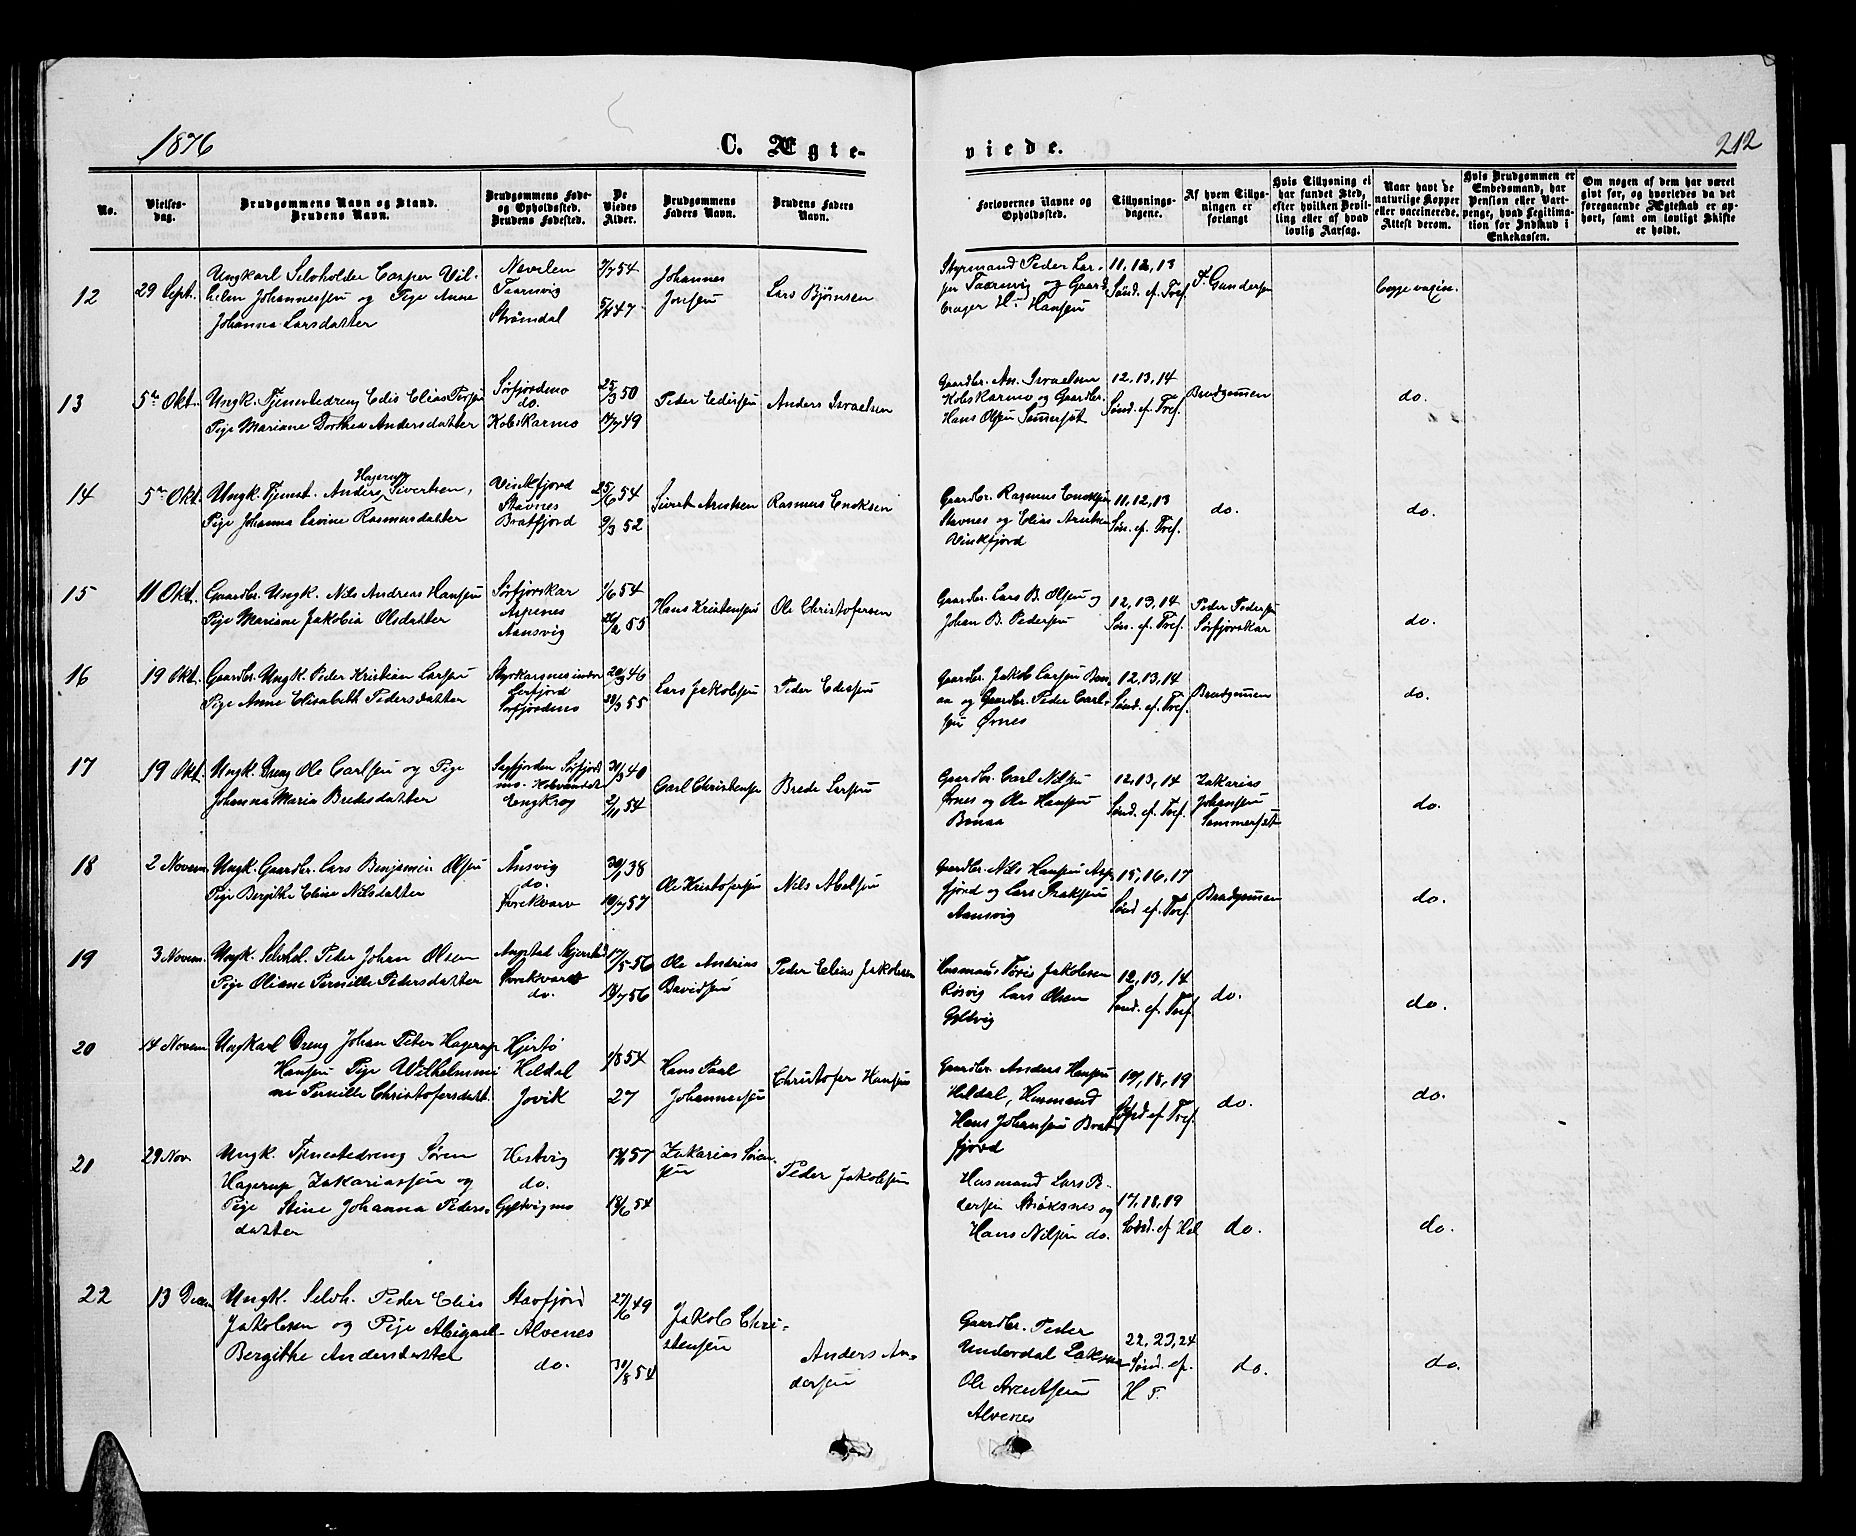 1876
C. Ægte-
viede.
212
No.
Vielses-
dag.
Brudgommens Navn og Stand.
Brudens Navn.
Brudgommens Føde-
og Opholdssted.
Brudens Fødested.
De
Viedes
Alder.
Brudgommens
Faders Navn.
Brudens Faders
Navn.
Forlovernes Navne og
Opholdssted.
Tillysnings-
dagene.
Af hvem Tillys-
ningen er
forlangt
Hvis Tillysning ei
har fundet Sted,
efter hvilken Bevil-
ling eller af hvad
lovlig Aarsag.
Naar havt de
naturlige Kopper
eller vaccinerede.
Attest derom.
Hvis Brudgommen er
Embedsmand, har
Pension eller Vart-
penge, hvad Legitima-
tion for Indskud i
Enkekassen.
Om nogen af dem har været
givt før, og hvorledes da det
foregaaende Ægteskab er op-
hørt, samt om lovligt Skifte
er holdt.
12
29 Sept.
Ungkarl Selvholder Casper Vil-
helm Johannessen og Pige Anne
Johanna Larsdatter
Nevelen
Taarnvig
Strømdal
2/7 54
5/4 47
Johannes
Jonsen
Lars Bjørnsen
Styrmand Peder Lar-
sen Taarnvig og Gaard
bruger H. Hansen
11, 12, 13
Sønd. ef. Tref.
T. Gundersen
Begge vaxin.
13
5te Okt.
Ungk. Tjenestedreng Edis Elias Persen
Pige Mariane Dorthea Andersdatter
Sørfjordmo
do.
Kobskarmo
25/3 50
14/7 49
Peder Edissen
Anders Israelsen
Gaardbr. An. Israelsen
Kobskarmo og Gaardbr.
Hans Olsen Sommerset
12, 13, 14
Sønd. ef. Tref.
Brudgommen
do.
14
5te Okt.
Ungk. Tjenst. Anders Hagerup Sivertsen,
Pige Johanna Lavine Rasmusdatter
Vinkfjord
Stavnes
Bratfjord
25/6 54
9/3 52
Sivert Arntsen
Rasmus Enoksen
Gaardbr. Rasmus Enoksen
Stavnes og Elias Arntsen
Vinkfjord
11, 12, 13
Søn. ef. Tref.
do.
do.
15
11 Okt.
Gaardbr. Ungk. Nils Andreas Hansen
Pige Mariane Jakobia Olsdatter
Sørfjorskar
Aspenes
Aansvig
1/6 54
26/2 55
Hans Kristensen
Ole Christofersen
Gaardbr. Lars B. Olsen og
Johan B. Pedersen
12, 13, 14
Søn. ef. Tref.
Peder Pedersen
Sørfjorskar
do.
16
19 Okt.
Gaardbr. Ungk. Peder Kristian Larsen
Pige Anne Elisabeth Pedersdatter
Styrkarsnes indre
Lerfjord
Sørfjordmo
20/3 46
28/3 55
Lars Jakobsen
Peder Edissen
Gaardbr. Jakob Larsen Bon-
aa og Gaardbr. Peder Carl-
sen Ørnes
12, 13, 14
Sønd. ef. Tref.
Brudgommen
do.
17
19 Okt.
Ungk. Dreng Ole Carlsen og Pige
Johanna Maria Bredesdatter
Sagfjorden Sørfjord
mo. Kobvandet
Engkrog
31/3 40
2/11 54
Carl Christensen
Brede Larsen
Gaardbr. Carl Nilsen
Ørnes og Ole Hansen
Bonaa
12, 13, 14
Sønd. ef. Tref.
Zakarias
Johansen
Sommerset
do.
18
2 Novem.
Ungk. Gaardbr. Lars Benjamin Olsen
Pige Bergithe Eline Nilsdatter
Ånsvig
do.
Kvækvarv
30/1 38
10/7 57
Ole Kristofersen
Nils Abelsen
Gaardbr. Nils Hansen Asp
fjord og Lars Isaksen
Aansvig
15, 16, 17
Sønd. ef. Tref.
Brudgommen
do.
19
3 Novem.
Ungk. Selvhol. Peder Johan Olsen
Pige Oliane Pernille Pedersdatter
do.
17/5 56
18/7 56
Ole Andrias
Davidsen
Peder Elias Jakobsen
Husmand Tøris Jakobsen
Røsvig Lars Olsen
Gyltvig
12, 13, 14
Sønd. ef. Tref.
do.
do.
20
14 Novem
Ungkarl Dreng Johan Peter Hagerup
Hansen Pige Wilhelmmi
ne Pernille Christofersdatt.
Hjertø
Heldal
Jovik
1/8 54
27
Hans Paal
Johannessen
Christofer Hansen
Gaardbr. Anders Hansen
Heldal, Husmand
Hans Johansen Brat
fjord
17, 18, 19
Sønd ef. Tref.
do.
do.
21
29 Nov.
Ungk. Tjenestedreng Søren
Hagerup Zakariassen og
Pige Stine Johanna Peders-
datter
Hestvig
do.
Gyltvigmo
13/6 57
18/6 54
Zakarias Søren-
sen
Peder Jakobsen
Husmand Lars P-
dersen Brøksnes og
Hans Nilsen do.
17, 18, 19
Sønd. ef. Hel
do.
do.
22
13 Decem
Ungk. Selvh. Peder Elias
Jakobsen og Pige Abigael
Bergithe Andersdatter
Stavfjord
Alvenes
do.
27/6 49
30/8 54
Jakob Chri-
stensen
Anders An-
dersen
Gaardbr. Peder
Underdal Laksnæ
Ole Arentsen
Alvenes
22, 23, 24
Sønd. ef.
H T.
do.
do.